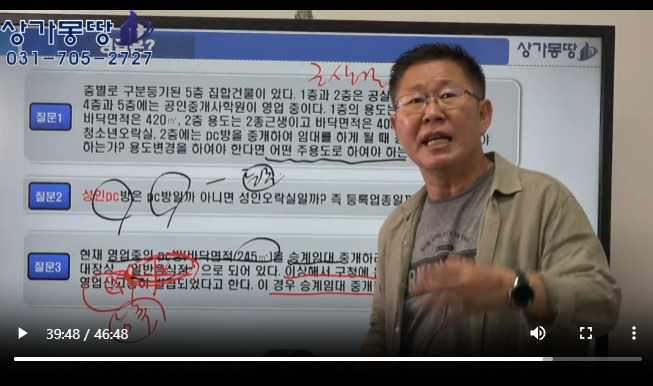 상가몽땅
031-705-2727
상가몽땅
층별로 구분등기된 5층 집합건물이 있다. 1층과 2층은 공실
4층과 5층에는 공인중개사학원이 영업 중이다. 1층의 용도는
질문1
바닥면적은 420㎡, 2층 용도는 2종근생이고 바닥면적은 40
청소년오락실, 2층에는 pc방을 중개하여 임대를 하게 될 때
하는가? 용도변경을 하여야 한다면 어떤 주용도로 하여야 하는
질문2
성인pc방은 pc방일까 아니면 성인오락실일까? 즉 등록업종일까
현재 영업중의 pc방(바닥면적 245㎡)을 승계임대 중개하려
질문3
대장상 "일반음식점"으로 되어 있다. 이상해서 구청에
발급되었다고 한다. 이 경우 승계임대 중개
39:48 / 46:48